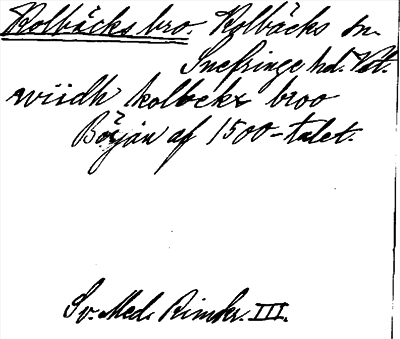 Kolbäcks bro. Kolbäcks sn
Snefringe hd. Vst.
wiidh kolbeks broo
Början af 1500-talet.
Sv. Med. Rimkr. III.